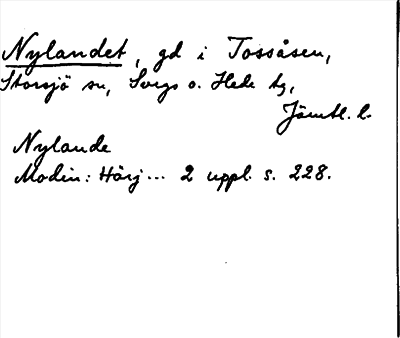 Nylandet, gd i Tossåsen,
Storsjö sn, Svegs o. Hede tg,
Jämtl. l.
Nylande
Modin: Härj... 2 uppl. s. 228.